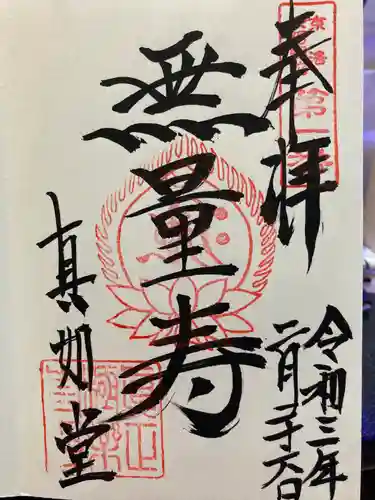 奉拝
令和三年
二月二十六日
無量寿
真如堂